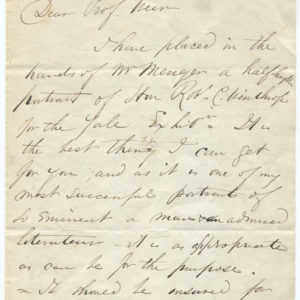 Dear Prof. Weir
I have placed in the
hands of Mr Menger a half length
portrait of Hon Robt. C. Winthrop
for the Yale Exhibn. It is
the best thing I can get
for you, and as it is one of my
most successful portraits of
so Eminent a man admired
literateur – it is as appropriate
as can be for the purpose.
– It should be insured for